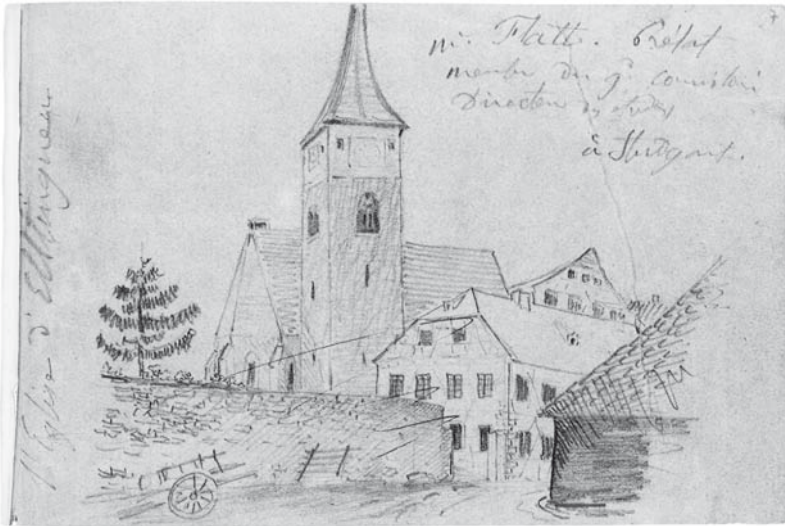 mr. Flatt. Prélat
membre du gd. consistoire
Directeur des études
à Stuttgart.
l'Eglise d'Eltingen